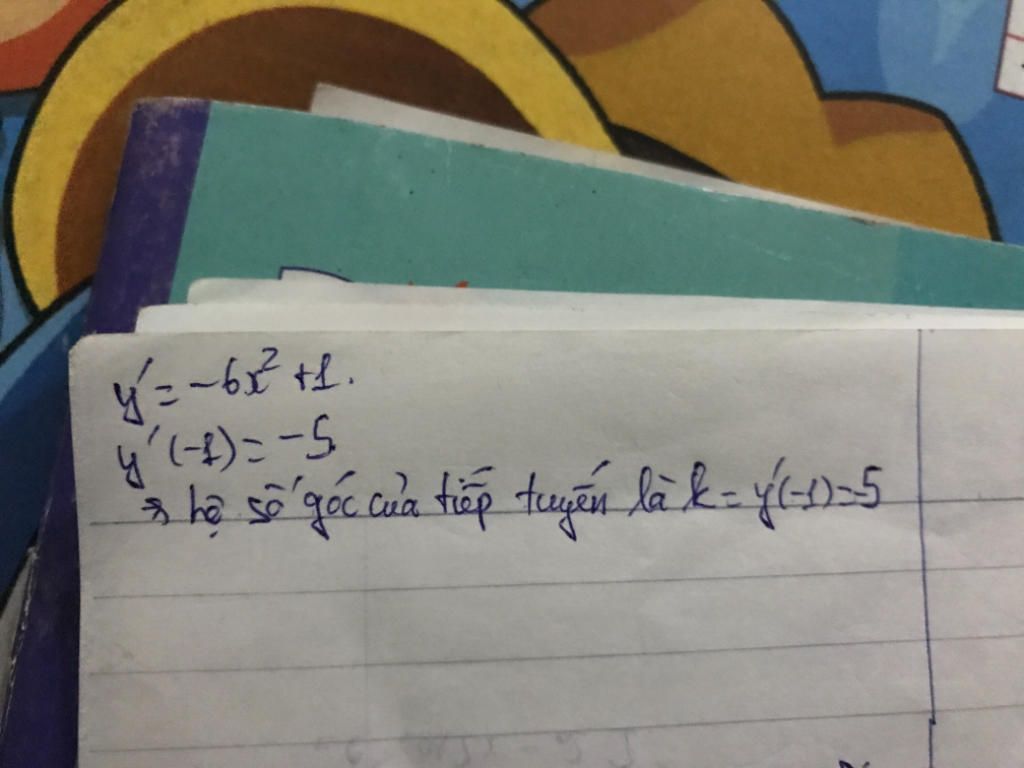 y' = -6x² + 1.
y'(-1) = -5
→ hệ số góc của tiếp tuyến là k = y'(-1) = -5